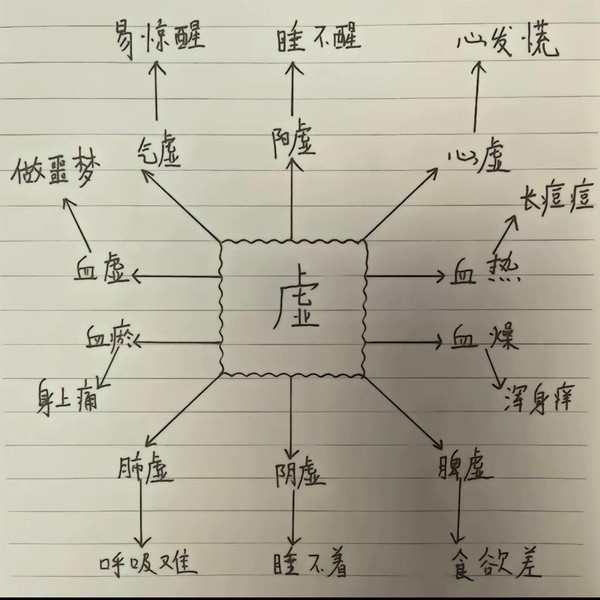 易惊醒 睡不醒 心发慌
气虚 阳虚 心虚
做噩梦 长痘痘
血虚 血热
虚
血瘀 血燥
身上痛 浑身痒
肺虚 阴虚 脾虚
呼吸难 睡不着 食欲差